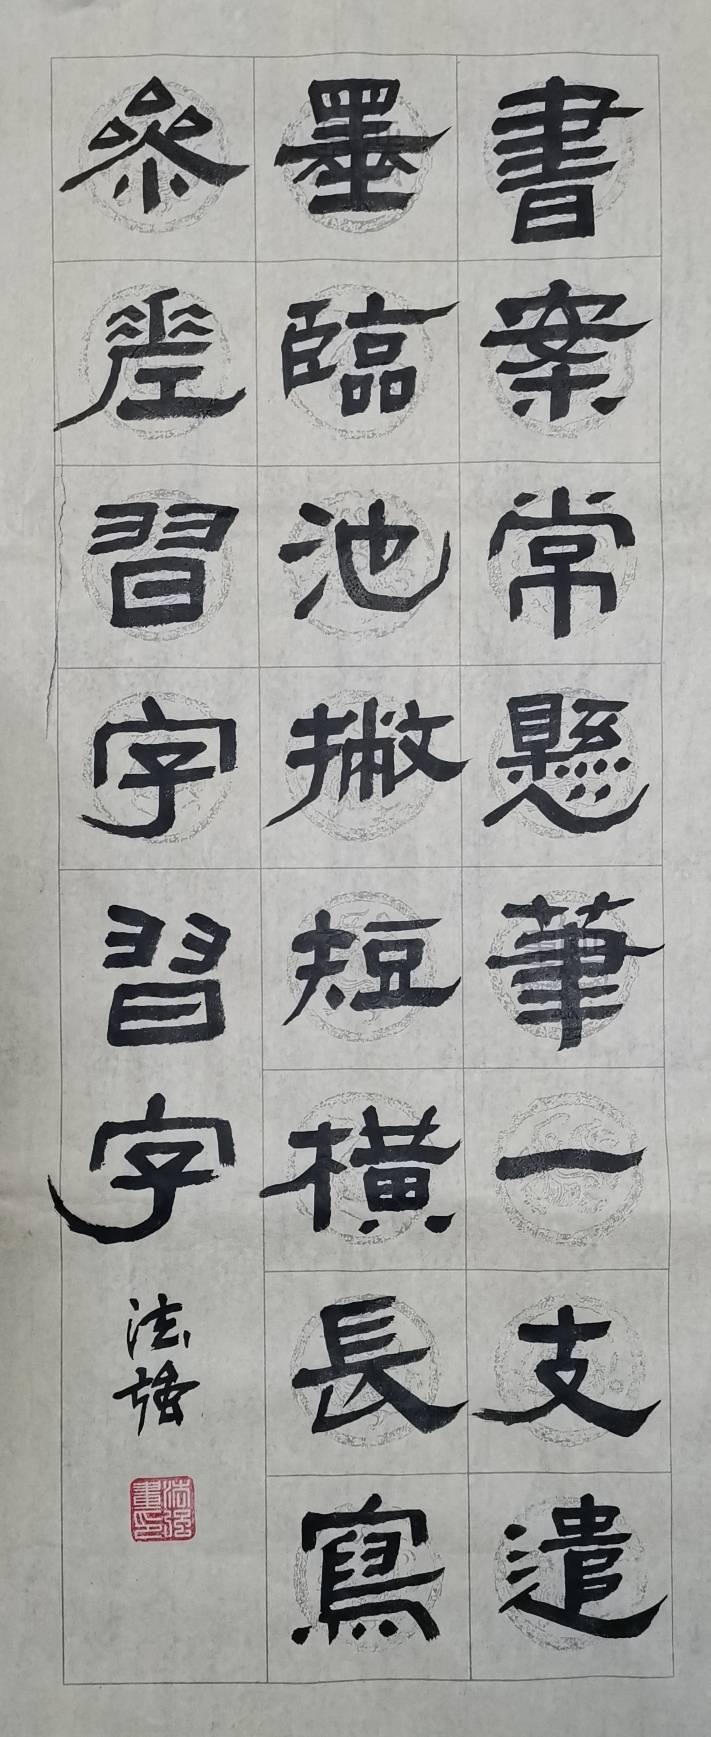 書案常懸筆一支遣
墨臨池撇短橫長寫
參差習字習字
法強